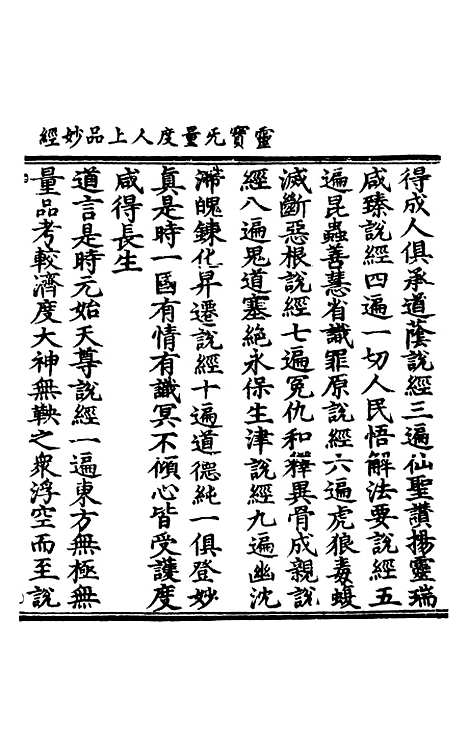 靈寶旡量度人上品妙經
得成人俱承道蔭說經三遍仙聖讚揚靈瑞
咸臻說經四遍一切人民悟解法要說經五
遍昆蟲善慧省識罪原說經六遍虎狼毒蝮
滅斷惡根說經七遍冤仇和釋異骨成親說
經八遍鬼道塞絕永保生津說經九遍幽沈
滯魄鍊化昇遷說經十遍道德純一俱登妙
真是時一國有情有識冥不傾心皆受護度
咸得長生
道言是時元始天尊說經一遍東方無極無
量品考較濟度大神無鞅之衆浮空而至說